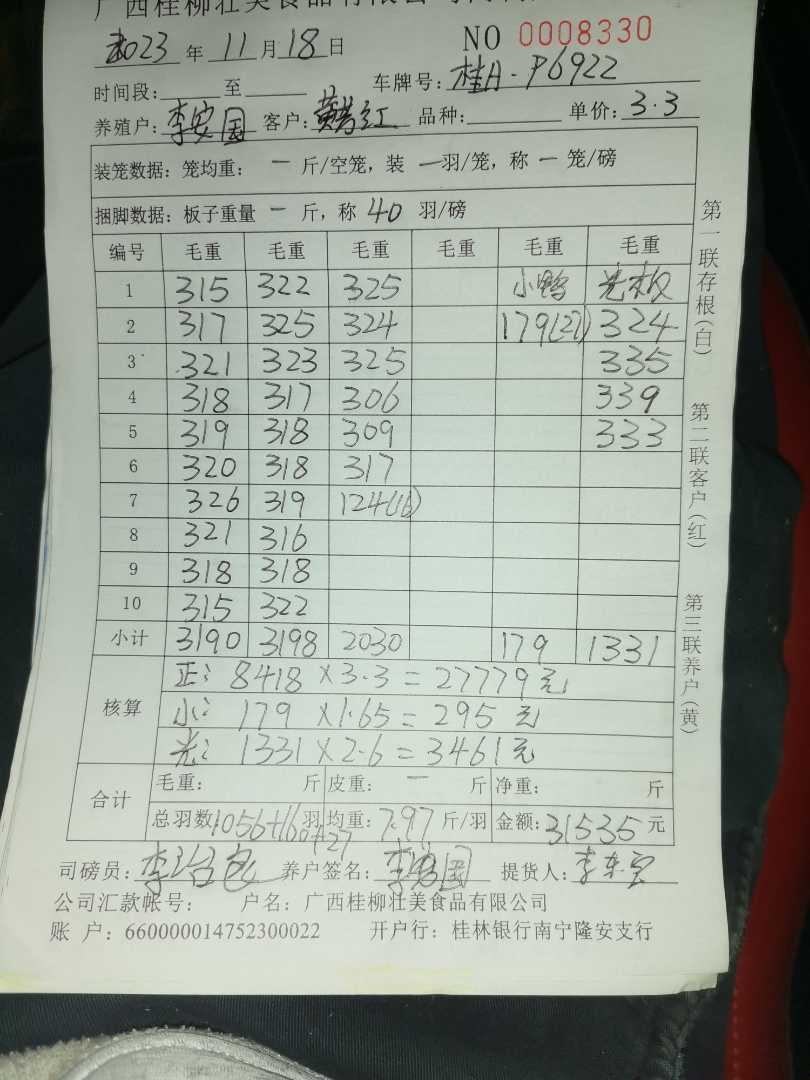 广西桂柳壮美食品有限公司
2023 年 11 月 18 日 NO 0008330
时间段: 至 车牌号: 桂A-P6922
养殖户: 李安国 客户: 红 品种: 单价: 3.3
装笼数据: 笼均重: 一 斤/空笼, 装 一 羽/笼, 称 一 笼/磅
捆脚数据: 板子重量 一 斤, 称 40 羽/磅
编号 毛重 毛重 毛重 毛重 毛重 毛重
1 315 322 325 小鸭 光板
2 317 325 324 179(27) 324
3 321 323 325 335
4 318 317 306 339
5 319 318 309 333
6 320 318 317
7 326 319 124(16)
8 321 316
9 318 318
10 315 322
小计 3190 3198 2030 179 1331
核算
正: 8418 × 3.3 = 27779元
小: 179 × 1.65 = 295 元
光: 1331 × 2.6 = 3461元
合计
毛重: 斤 皮重: 一 斤 净重: 斤
总羽数 1056+160+27 羽 均重: 7.97 斤/羽 金额: 31535 元
司磅员: 养户签名: 李安国 提货人: 李
公司汇款帐号: 户名: 广西桂柳壮美食品有限公司
账 户: 660000014752300022 开户行: 桂林银行南宁隆安支行
第一联存根(白)
第二联客户(红)
第三联养户(黄)